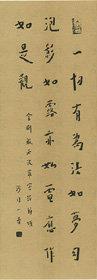 一切有為法如夢幻
泡影如露亦如電應作
如是觀
金剛般若波羅
沙門一音